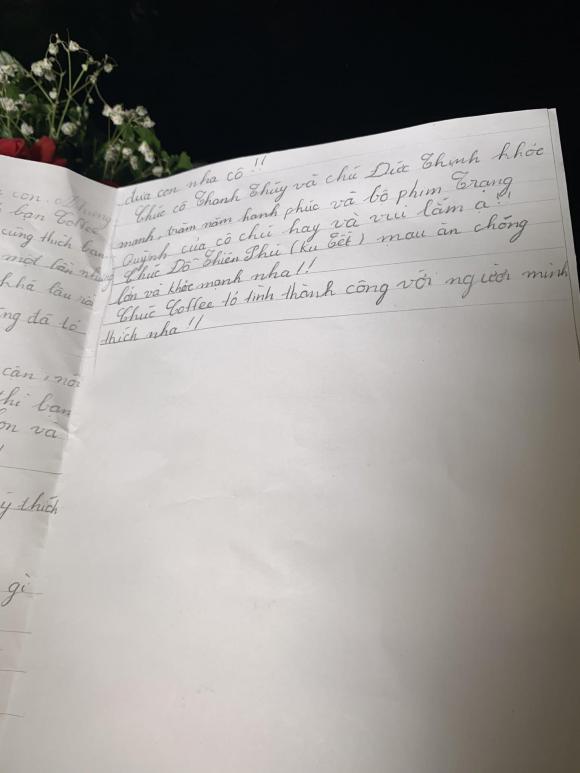 con. Nhưng
bạn Coffee
cũng thích bạn
một lần nhưng
khá lâu rồi
ng đã tỏ
cận, nói
thì bạn
ơn và
ý thích
gì
đứa con nha cô !!
Chúc cô Thanh Thúy và chú Đức Thịnh khỏe
mạnh, trăm năm hạnh phúc và bộ phim Trạng
Quỳnh của cô chú hay và vui lắm ạ !!
Chúc Đỗ Thiên Phú (Ku Tết) mau ăn chóng
lớn và khỏe mạnh nha !!
Chúc Coffee tỏ tình thành công với người mình
thích nha !!